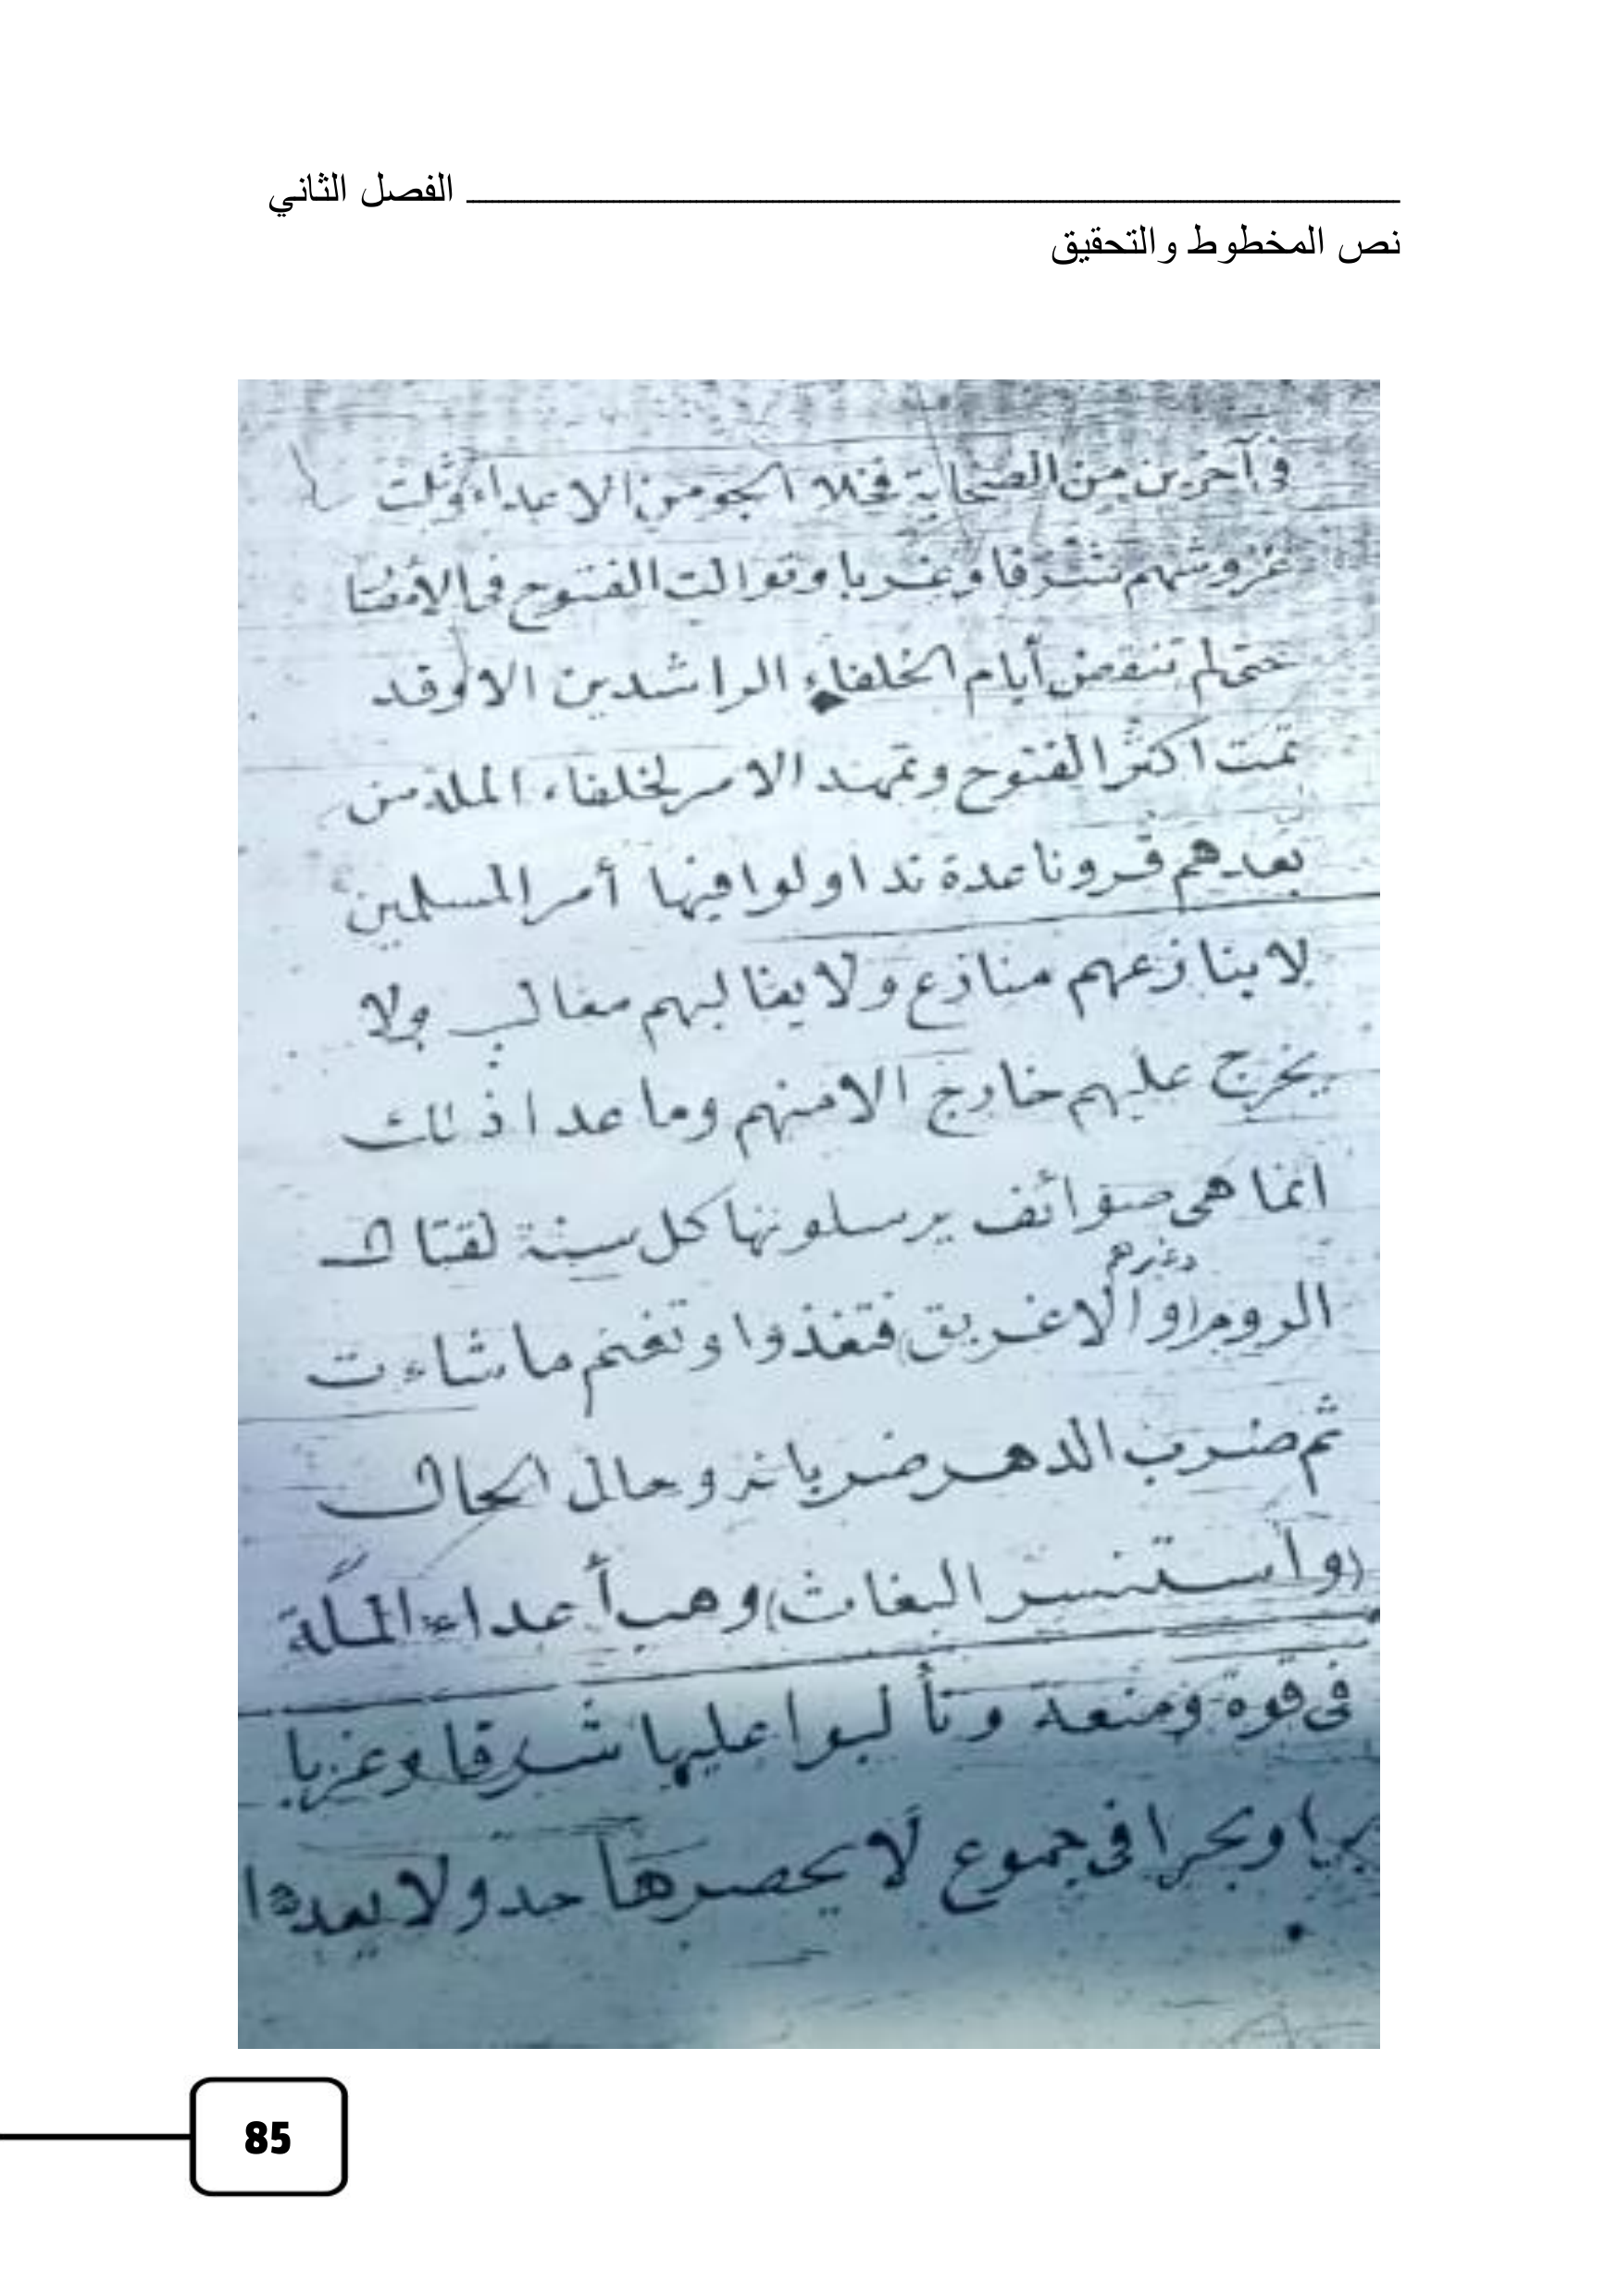 الفصل الثاني
نص المخطوط والتحقيق
في آخرين من الصحابة فخلا الجو من الاعداء وثلت
عروشهم شرقا وغربا وتوالت الفتوح في
حتى لم تنقض أيام الخلفاء الراشدين الا وقد
تمت اكثر الفتوح وتمهد الامر لخلفاء الملة من
بعدهم قرونا عدة تداولوا فيها أمر المسلمين
لا ينازعهم منازع ولا يغالبهم مغالب ولا
يخرج عليهم خارج الا منهم وما عدا ذلك
انما هى صوائف يرسلونها كل سنة لقتال
وغيرهم
الروم (او الاغريق) فتغذوا وتغنم ما شاءت
ثم ضرب الدهر ضرباته وحال الحال
(وأستنسر البغاث) وهب أعداء الملّة
فى قوة ومنعة وتألبوا عليها شرقا وغربا
برا وبحرا فى جموع لا يحصرها حد ولا يعدها
85